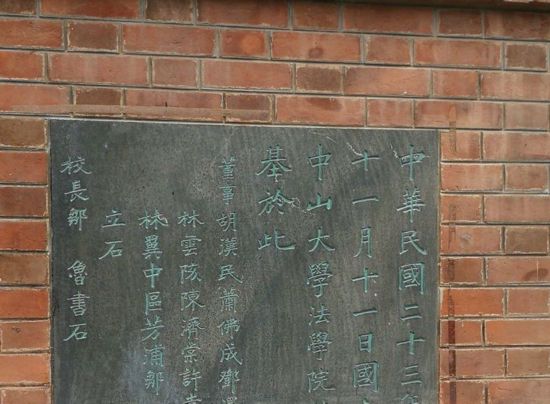 中華民國二十三年
十一月十一日國立
中山大學法學院
基於此
董事胡漢民蕭佛成鄧
林雲陔陳濟棠許崇
林翼中區芳浦鄒
立石
校長鄒魯書石